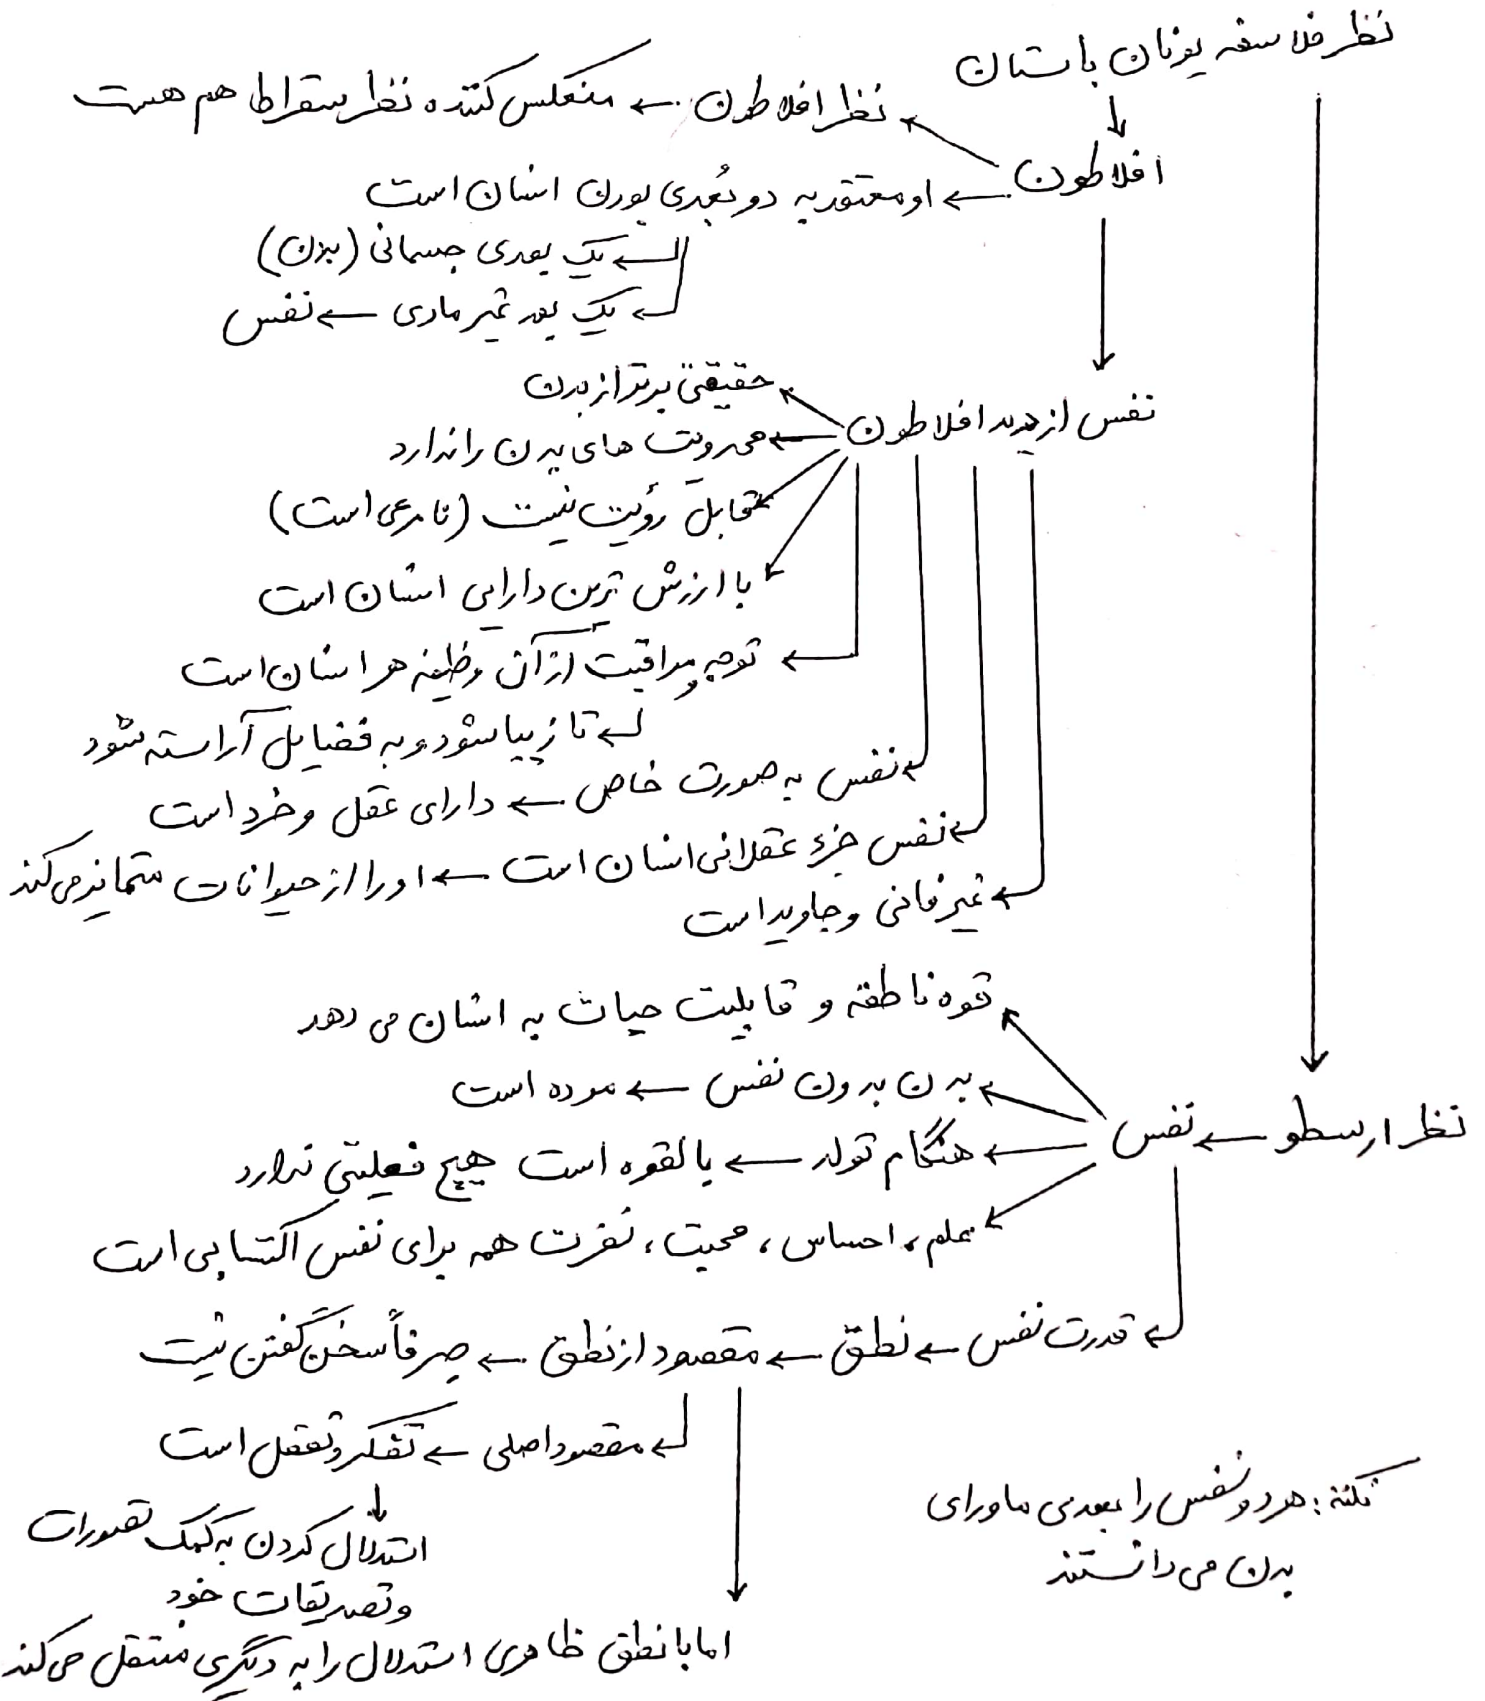 نظر فلاسفه یونان باستان
افلاطون
نظر افلاطون ← منعکس کننده نظر سقراط هم هست
← او معتقد به دو بُعدی بودن انسان است
← یک بعدی جسمانی (بدن)
← یک بعد غیر مادی ← نفس
نفس از دید افلاطون
حقیقتی برتر از بدن
← محدودیت های بدن را ندارد
قابل رؤیت نیست (نامرعی است)
با ارزش ترین دارایی انسان است
← توجه و مراقبت از آن وظیفه هر انسان است
← تا زیبا شود و به فضایل آراسته شود
← نفس به صورت خاص ← دارای عقل و خرد است
← نفس جزء عقلانی انسان است ← او را از حیوانات متمایز می کند
← غیر فانی و جاوید است
نظر ارسطو ← نفس
قوه ناطقه و قابلیت حیات به انسان می دهد
بدن بدون نفس ← مرده است
← هنگام تولد ← بالقوه است هیچ فعلیتی ندارد
علم، احساس، محبت، نفرت همه برای نفس اکتسابی است
← قدرت نفس ← نطق ← مقصود از نطق ← صرفاً سخن گفتن نیست
← مقصود اصلی ← تفکر و تعقل است
استدلال کردن به کمک تصورات
و تصدیقات خود
اما با نطق ظاهری استدلال را به دیگری منتقل می کند
نکته: هر دو نفس را بعدی ماورای
بدن می دانستند